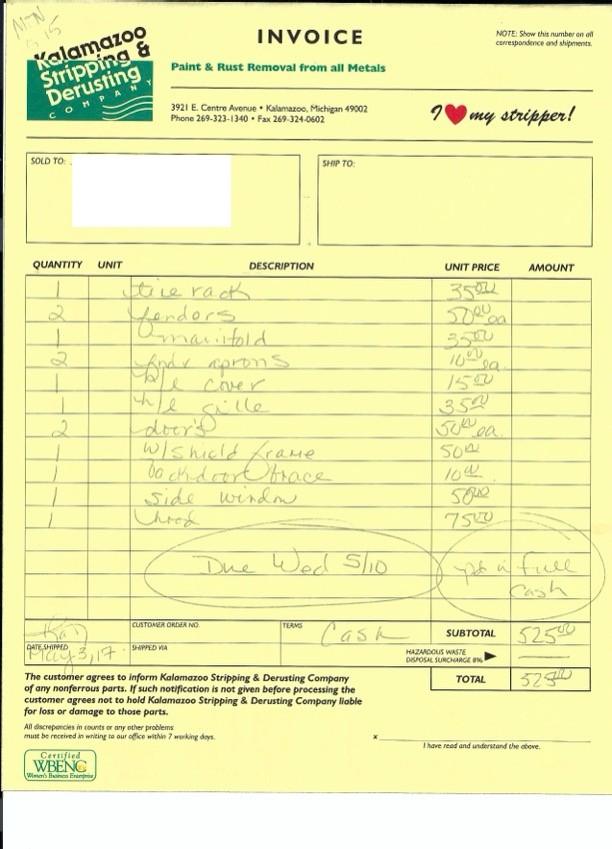 INVOICE
NOTE: Show this number on all
correspondence and shipments.
Kalamazoo
Stripping &
Derusting
COMPANY
Paint & Rust Removal from all Metals
3921 E. Centre Avenue • Kalamazoo, Michigan 49002
Phone 269-323-1340 • Fax 269-324-0602
I ❤ my stripper!
SOLD TO:
SHIP TO:
QUANTITY UNIT DESCRIPTION UNIT PRICE AMOUNT
1 tire rack 35.00
2 fendors 50.00 ea
1 manifold 35.00
2 fndr aprons 10.00 ea.
1 cover 15.00
1 h/l gille 35.00
2 door's 50.00 ea.
1 w/shield frame 50.00
1 backdoor brace 10.00
1 side window 50.00
1 75.00
Due Wed 5/10 pd in full
Cash
CUSTOMER ORDER NO. TERMS Cash SUBTOTAL 525.00
DATE SHIPPED May 3, 17 SHIPPED VIA HAZARDOUS WASTE
DISPOSAL SURCHARGE 8%
TOTAL 525.00
The customer agrees to inform Kalamazoo Stripping & Derusting Company
of any nonferrous parts. If such notification is not given before processing the
customer agrees not to hold Kalamazoo Stripping & Derusting Company liable
for loss or damage to those parts.
All discrepancies in counts or any other problems
must be received in writing to our office within 7 working days.
x
I have read and understand the above.
Certified
WBENC
Women's Business Enterprise